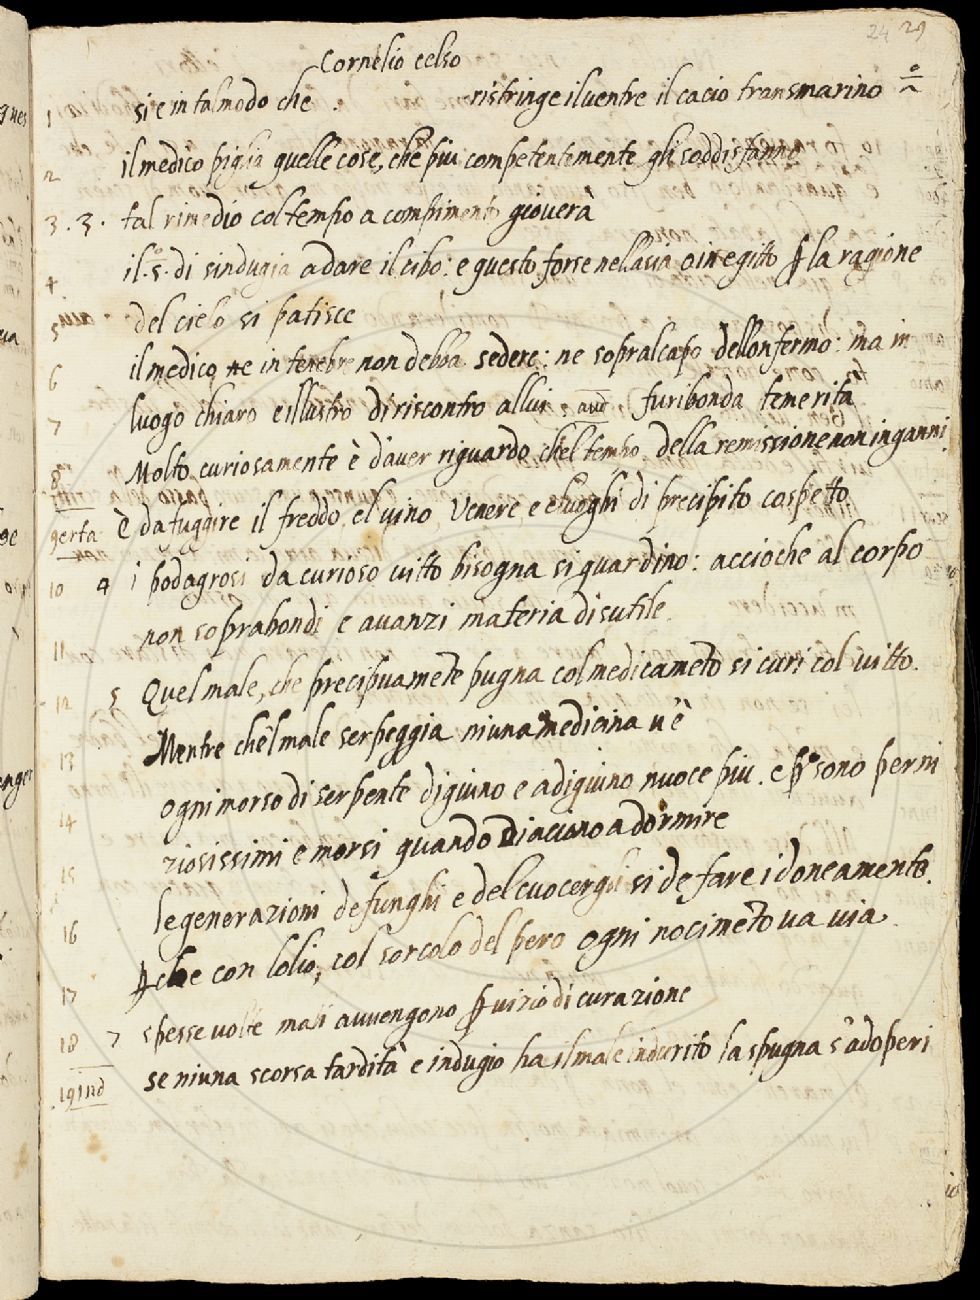 24 29
Cornelio celso
1 si e in tal modo che . ristringe il ventre il cacio transmarino
2 il medico piglia quelle cose, che piu competentemente gli soddisfanno
3 . 3 . tal rimedio col tempo a compimento gioverà
4 il . 5 . di s'indugia a dare il cibo: e questo forse nell asia o in egitto ꝑ la ragione
5 del cielo si patisce
6 il medico ne in tenebre non debba sedere: ne sopral capo dell onfermo: ma in
7 luogo chiaro e illustro di riscontro allui . furibonda temerità
8 Molto curiosamente è d'aver riguardo chel tempo della remissione non inganni
9 erta È da fuggire il freddo el vino Venere e e luoghi di precipito cospetto
10 4 i podagrosi da curioso vitto bisogna si guardino: accioche al corpo
11 non soprabondi e avanzi materia disutile.
12 5 Quel male, che precipuamēte pugna col medicamēto si curi col vitto.
13 Mentre chel male serpeggia niuna medicina v'è
ogni morso di serpente digiuno e a digiuno nuoce piu . e ꝑo sono perni
14 ziosissimi e morsi quando Diacciono a dormire
15 le generazioni de funghi e del si de fare idoneamente.
16 ꝑche con lolio, col sorcolo del pero ogni nocimēto va via
17 spesse volte mali avvengono ꝑ vizio di curazione
18 7 se niuna scorsa tardità e indugio ha il male indurito la spugna s'adoperi
19 ind